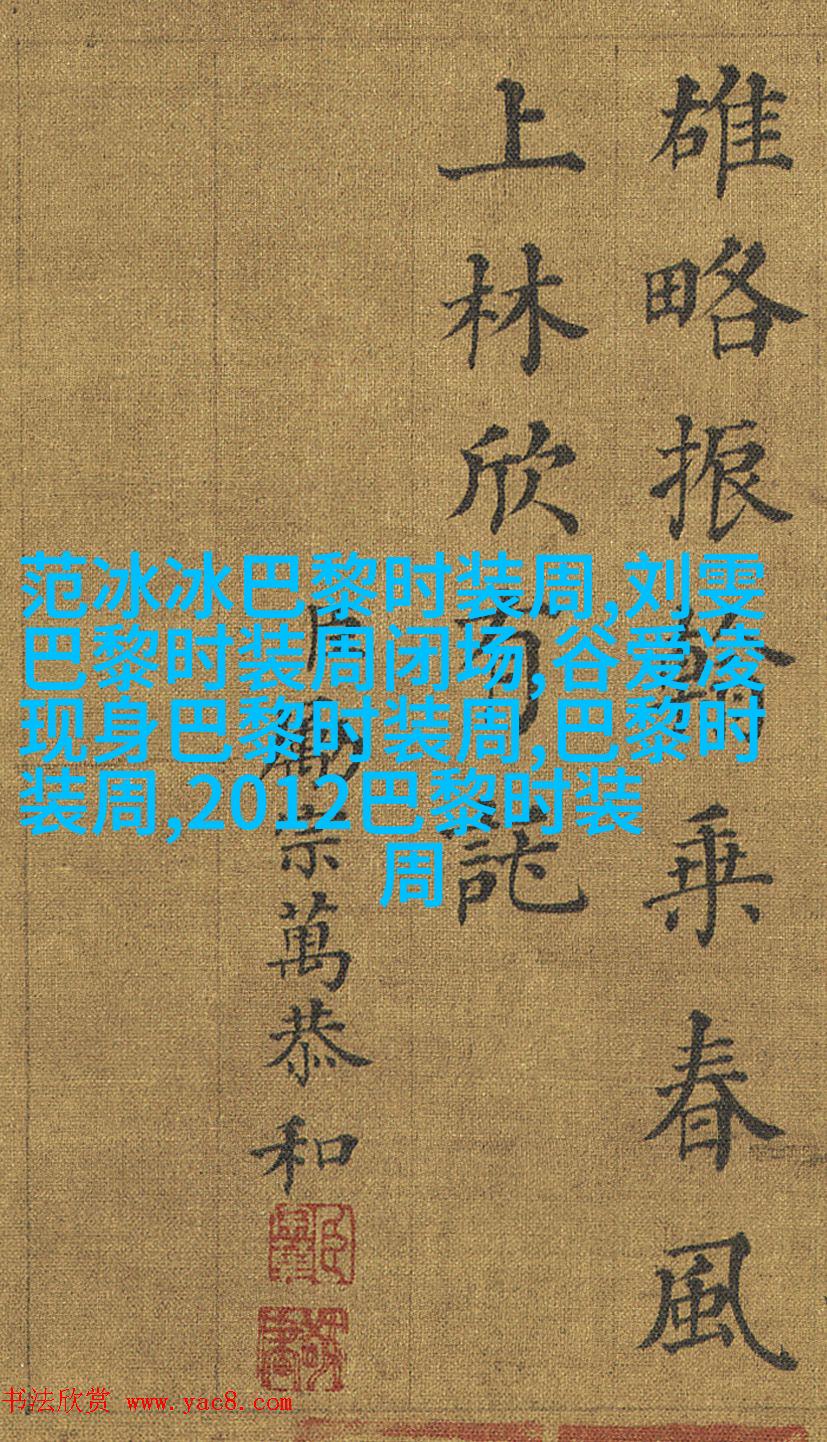 雄略振乘春風
上林欣託
臣勵宗萬恭和
范冰冰巴黎时装周,刘雯
巴黎时装周闭场,谷爱凌
现身巴黎时装周,巴黎时
装周,2012巴黎时装
周
书法欣赏 www.yac8.com